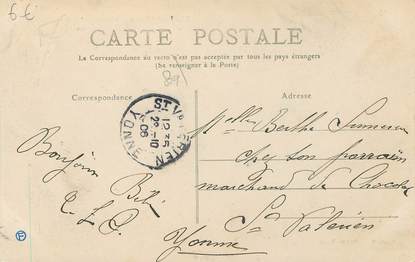 6€
CARTE POSTALE
La Correspondance au recto n'est pas acceptée par tous les pays étrangers
(Se renseigner à la Poste)
Correspondance
Adresse
ST VALÉRIEN
12-35
2-10
06
YONNE
Melle Berthe
chez son parrain
marchand de Chocolat
St Valérien
Yonne
Bonjour